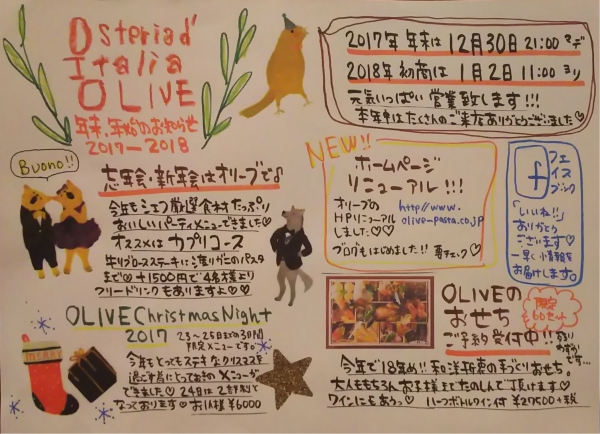 Osteria d'
Italia
OLIVE
年末、年始のお知らせ
2017-2018
2017年 年末は 12月30日 21:00 マデ
2018年 初商は 1月2日 11:00 ヨリ
元気いっぱい営業致します!!!
本年中はたくさんのご来店ありがとうございました♡
Buono!!
忘年会・新年会はオリーブで♪
今年もシェフ厳選食材たっぷり
おいしいパーティメニューできました♡
オススメは カプリコース
牛リブロースステーキに渡りガニのパスタ
まで♡ +1500円で4名様より
フリードリンクもありますよ♡♡
NEW!!
ホームページ
リニューアル!!!
オリーブの
HPリニューアル
しました♡♡
http://www.
olive-pasta.co.jp
ブログもはじめました!! 要チェック♡
フェ
イス
ブック
f
「いいね!!」
ありがとう
ございます♡
一早く情報を
お届けします。
OLIVE Christmas Night
2017
23~25日までの3日間
限定メニューです。
今年もとってもステキなクリスマスを
過ごす為にとっておきのメニューが
できました♡ 24日は2部制と
なっております♡ お1人様 ¥6000
MERRY
OLIVEの
おせち
ご予約受付中!!
限定
60セット
残り
わずか
です…
今年で18年め!! 和洋折衷の手づくりおせち。
大人ももちろんお子様までたのしんで頂けます♡
ワインにもあうっ♡ ハーフボトルワイン付 ¥27500+税